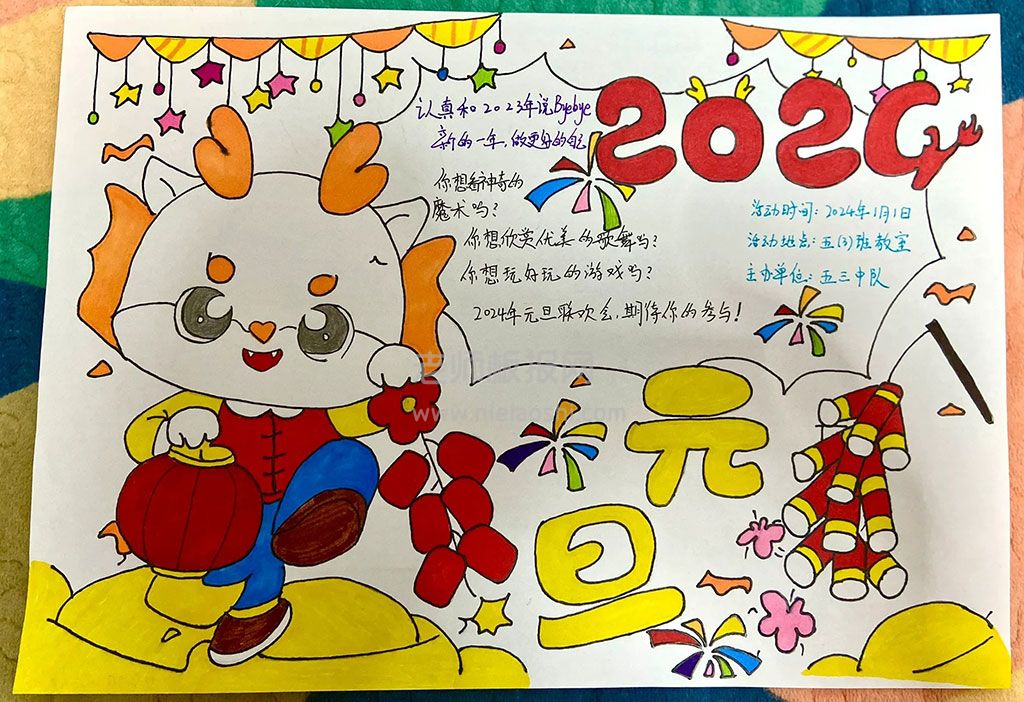 2024
认真和2023年说Byebye
新的一年,做更好的自己
你想看神奇的
魔术吗?
你想欣赏优美的歌舞吗?
你想玩好玩的游戏吗?
2024年元旦联欢会,期待你的参与!
活动时间:2024年1月1日
活动地点:五(3)班教室
主办单位:五三中队
老师板报网
www.nielaoshi.com
元
旦